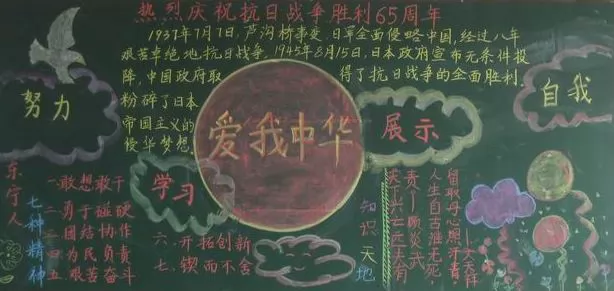 热烈庆祝抗日战争胜利65周年
1937年7月7日,芦沟桥事变,日军全面侵略中国,经过八年
艰苦卓绝地抗日战争,1945年8月15日,日本政府宣布无条件投
降,中国政府取得了抗日战争的全面胜利.
粉碎了日本
帝国主义的
侵华梦想.
努力
爱我中华
展示
自我
学习
东宁人
七种精神
一.敢想敢干
二.勇于碰硬
三.团结协作
四.为民负责
五.艰苦奋斗
六.开拓创新
七.锲而不舍
知识天地
天下兴亡匹夫有
责 顾炎武
人生自古谁无死,
留取丹心照汗青.
文天祥